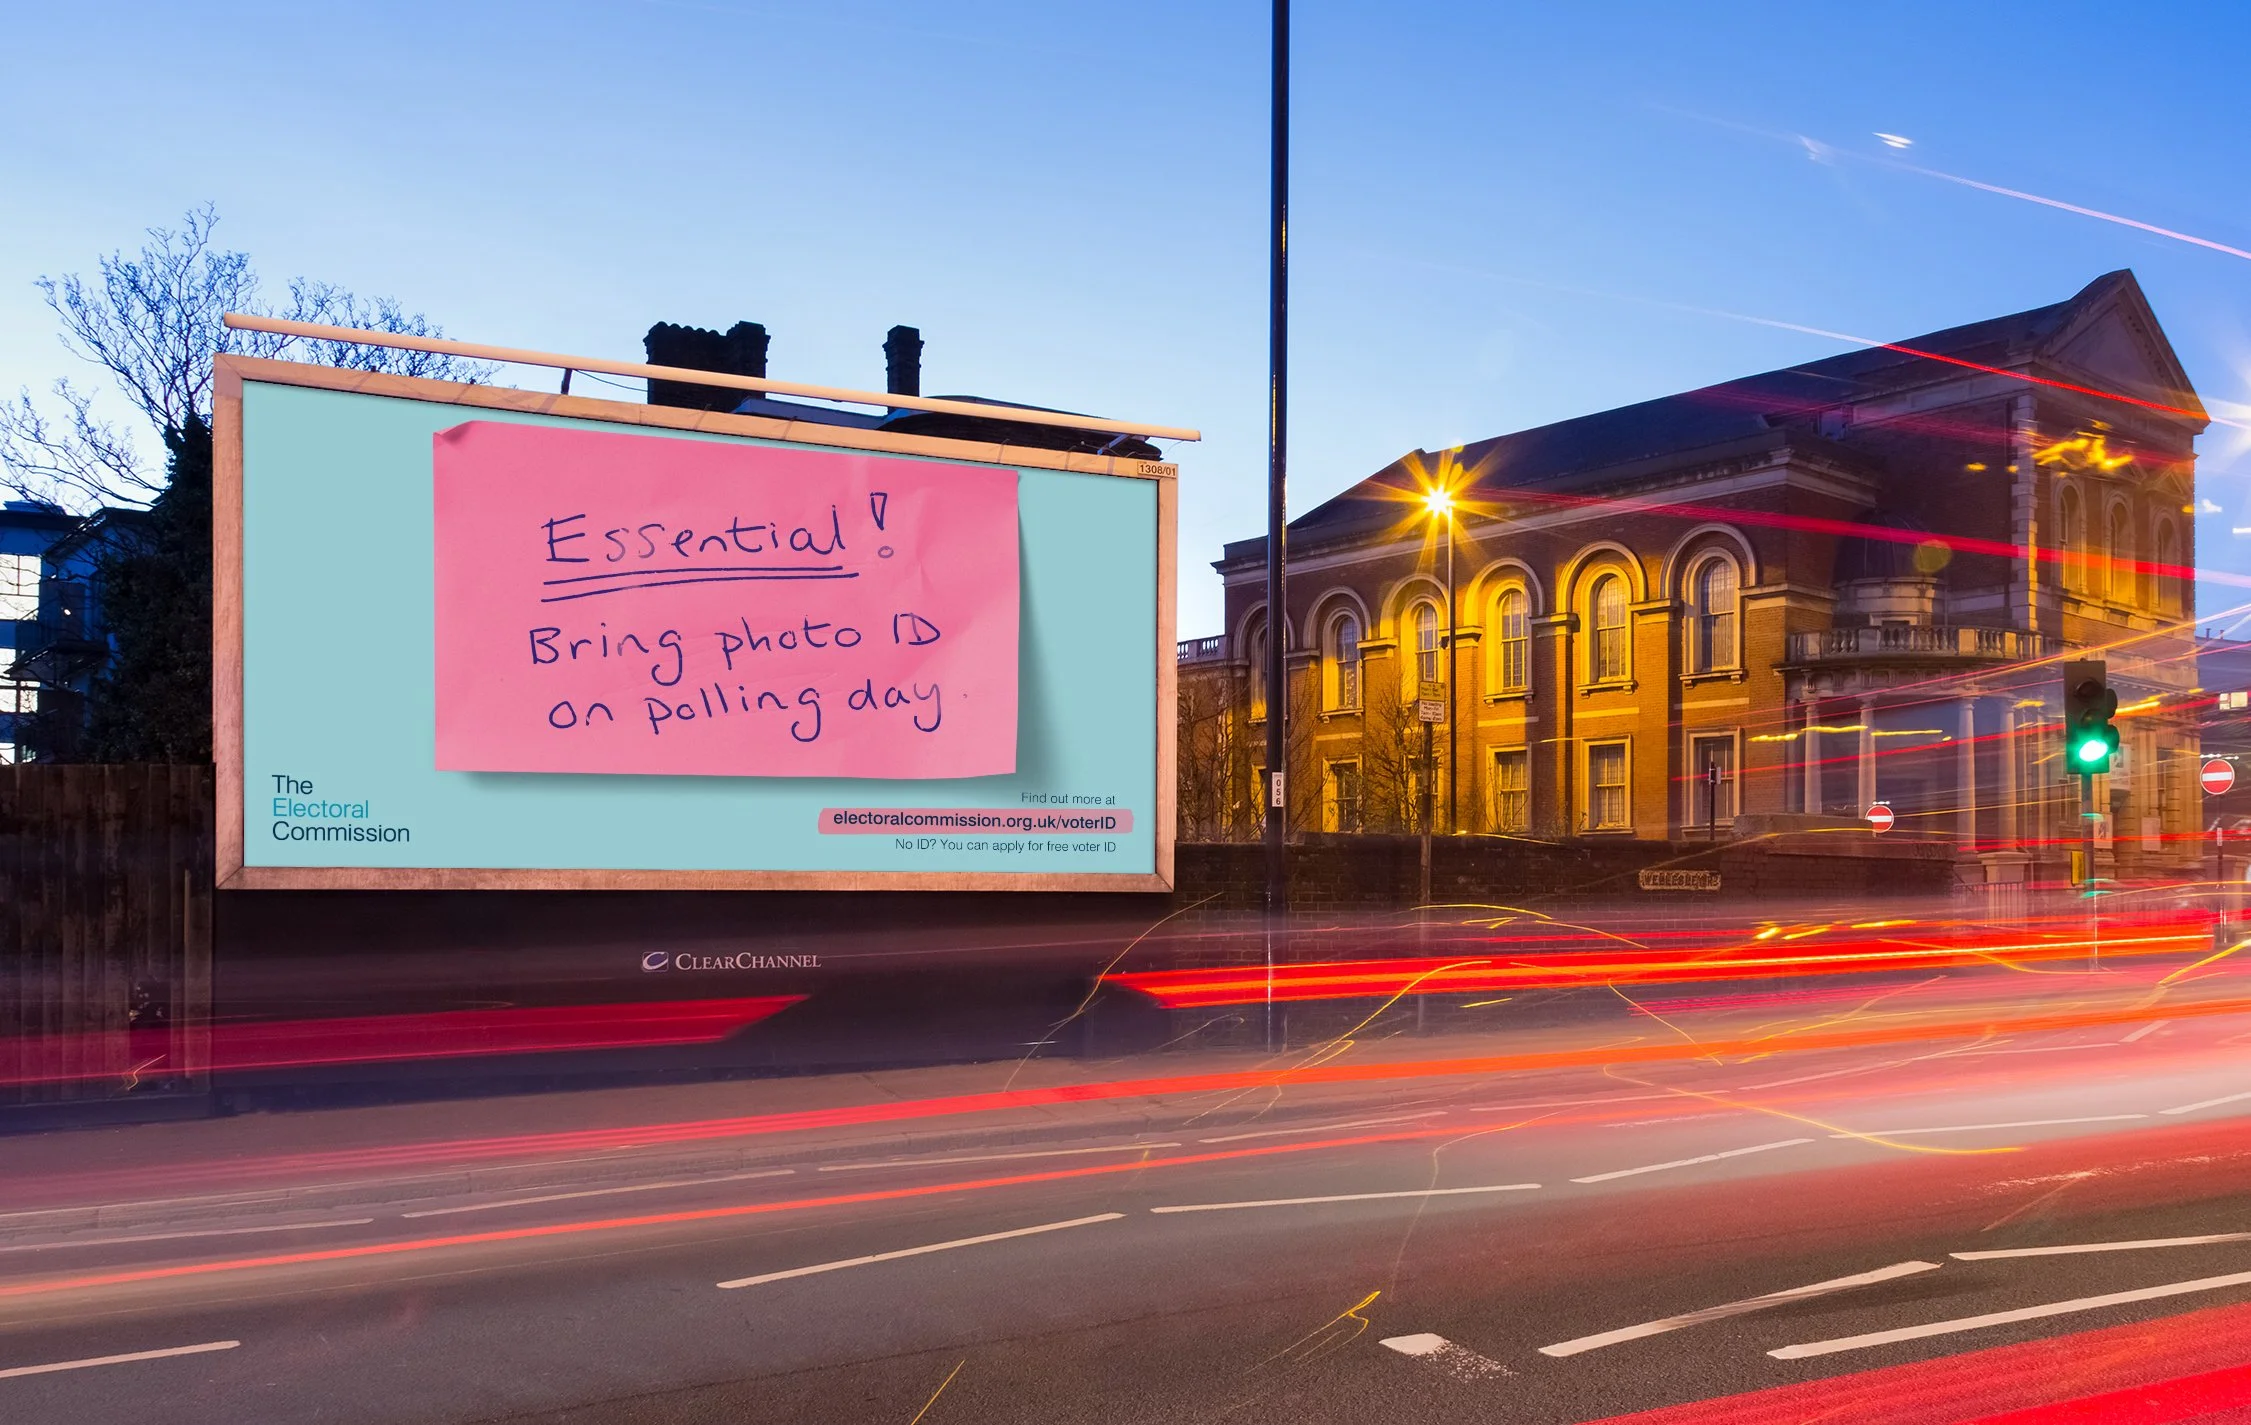 1308/01
Essential!
Bring photo ID
on polling day.
The
Electoral
Commission
Find out more at
electoralcommission.org.uk/voterID
No ID? You can apply for free voter ID
CLEARCHANNEL
056